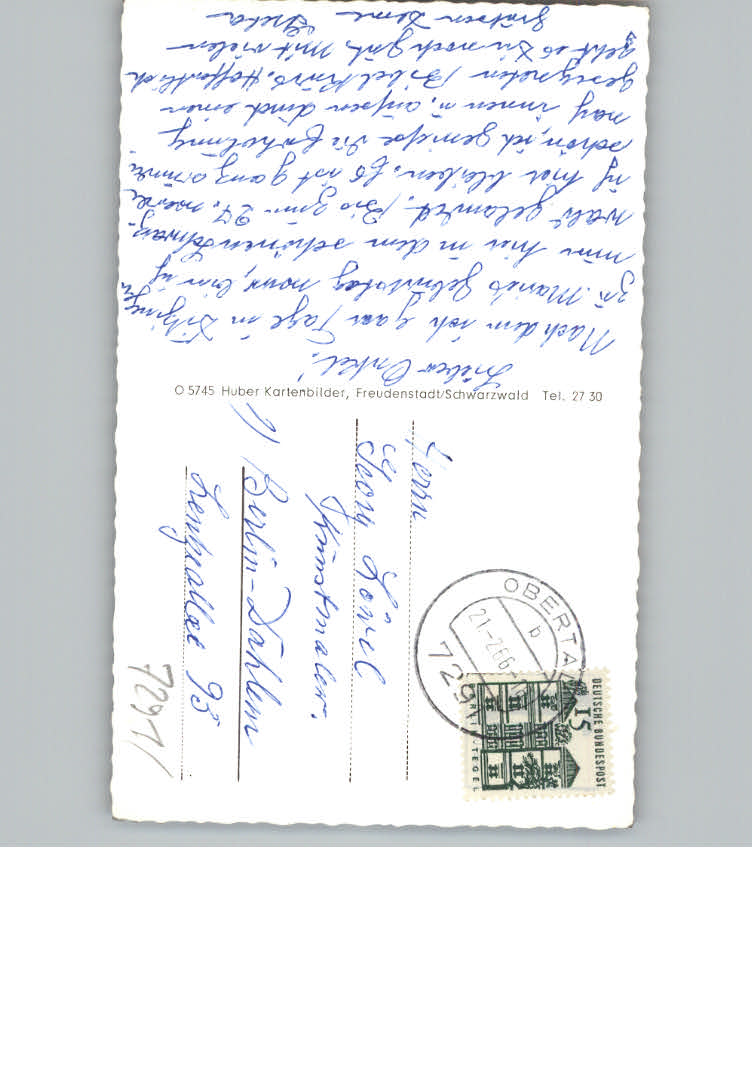 Lieber Onkel!
Nachdem ich paar Tage in Sitzing
zu Maries Geburtstag war, bin ich
nun hier in dem schönen Schwarz-
wald gelandet. Bis zum 27. werde
ich hier bleiben. Es ist ganz
schön, ich genieße die Erholung
nach innen u. außen durch einen
gesegneten Bibelkurs. Hoffentlich
geht es Dir noch gut. Mit vielen
Grüßen Deine Greta
O 5745 Huber Kartenbilder, Freudenstadt/Schwarzwald Tel. 27 30
Herrn
Georg Löwel
Kunstmaler.
1) Berlin-Dahlem
Lentzeallee 95
7297/
OBERTAL
b
21-7.66
729
DEUTSCHE BUNDESPOST
15
TEGEL